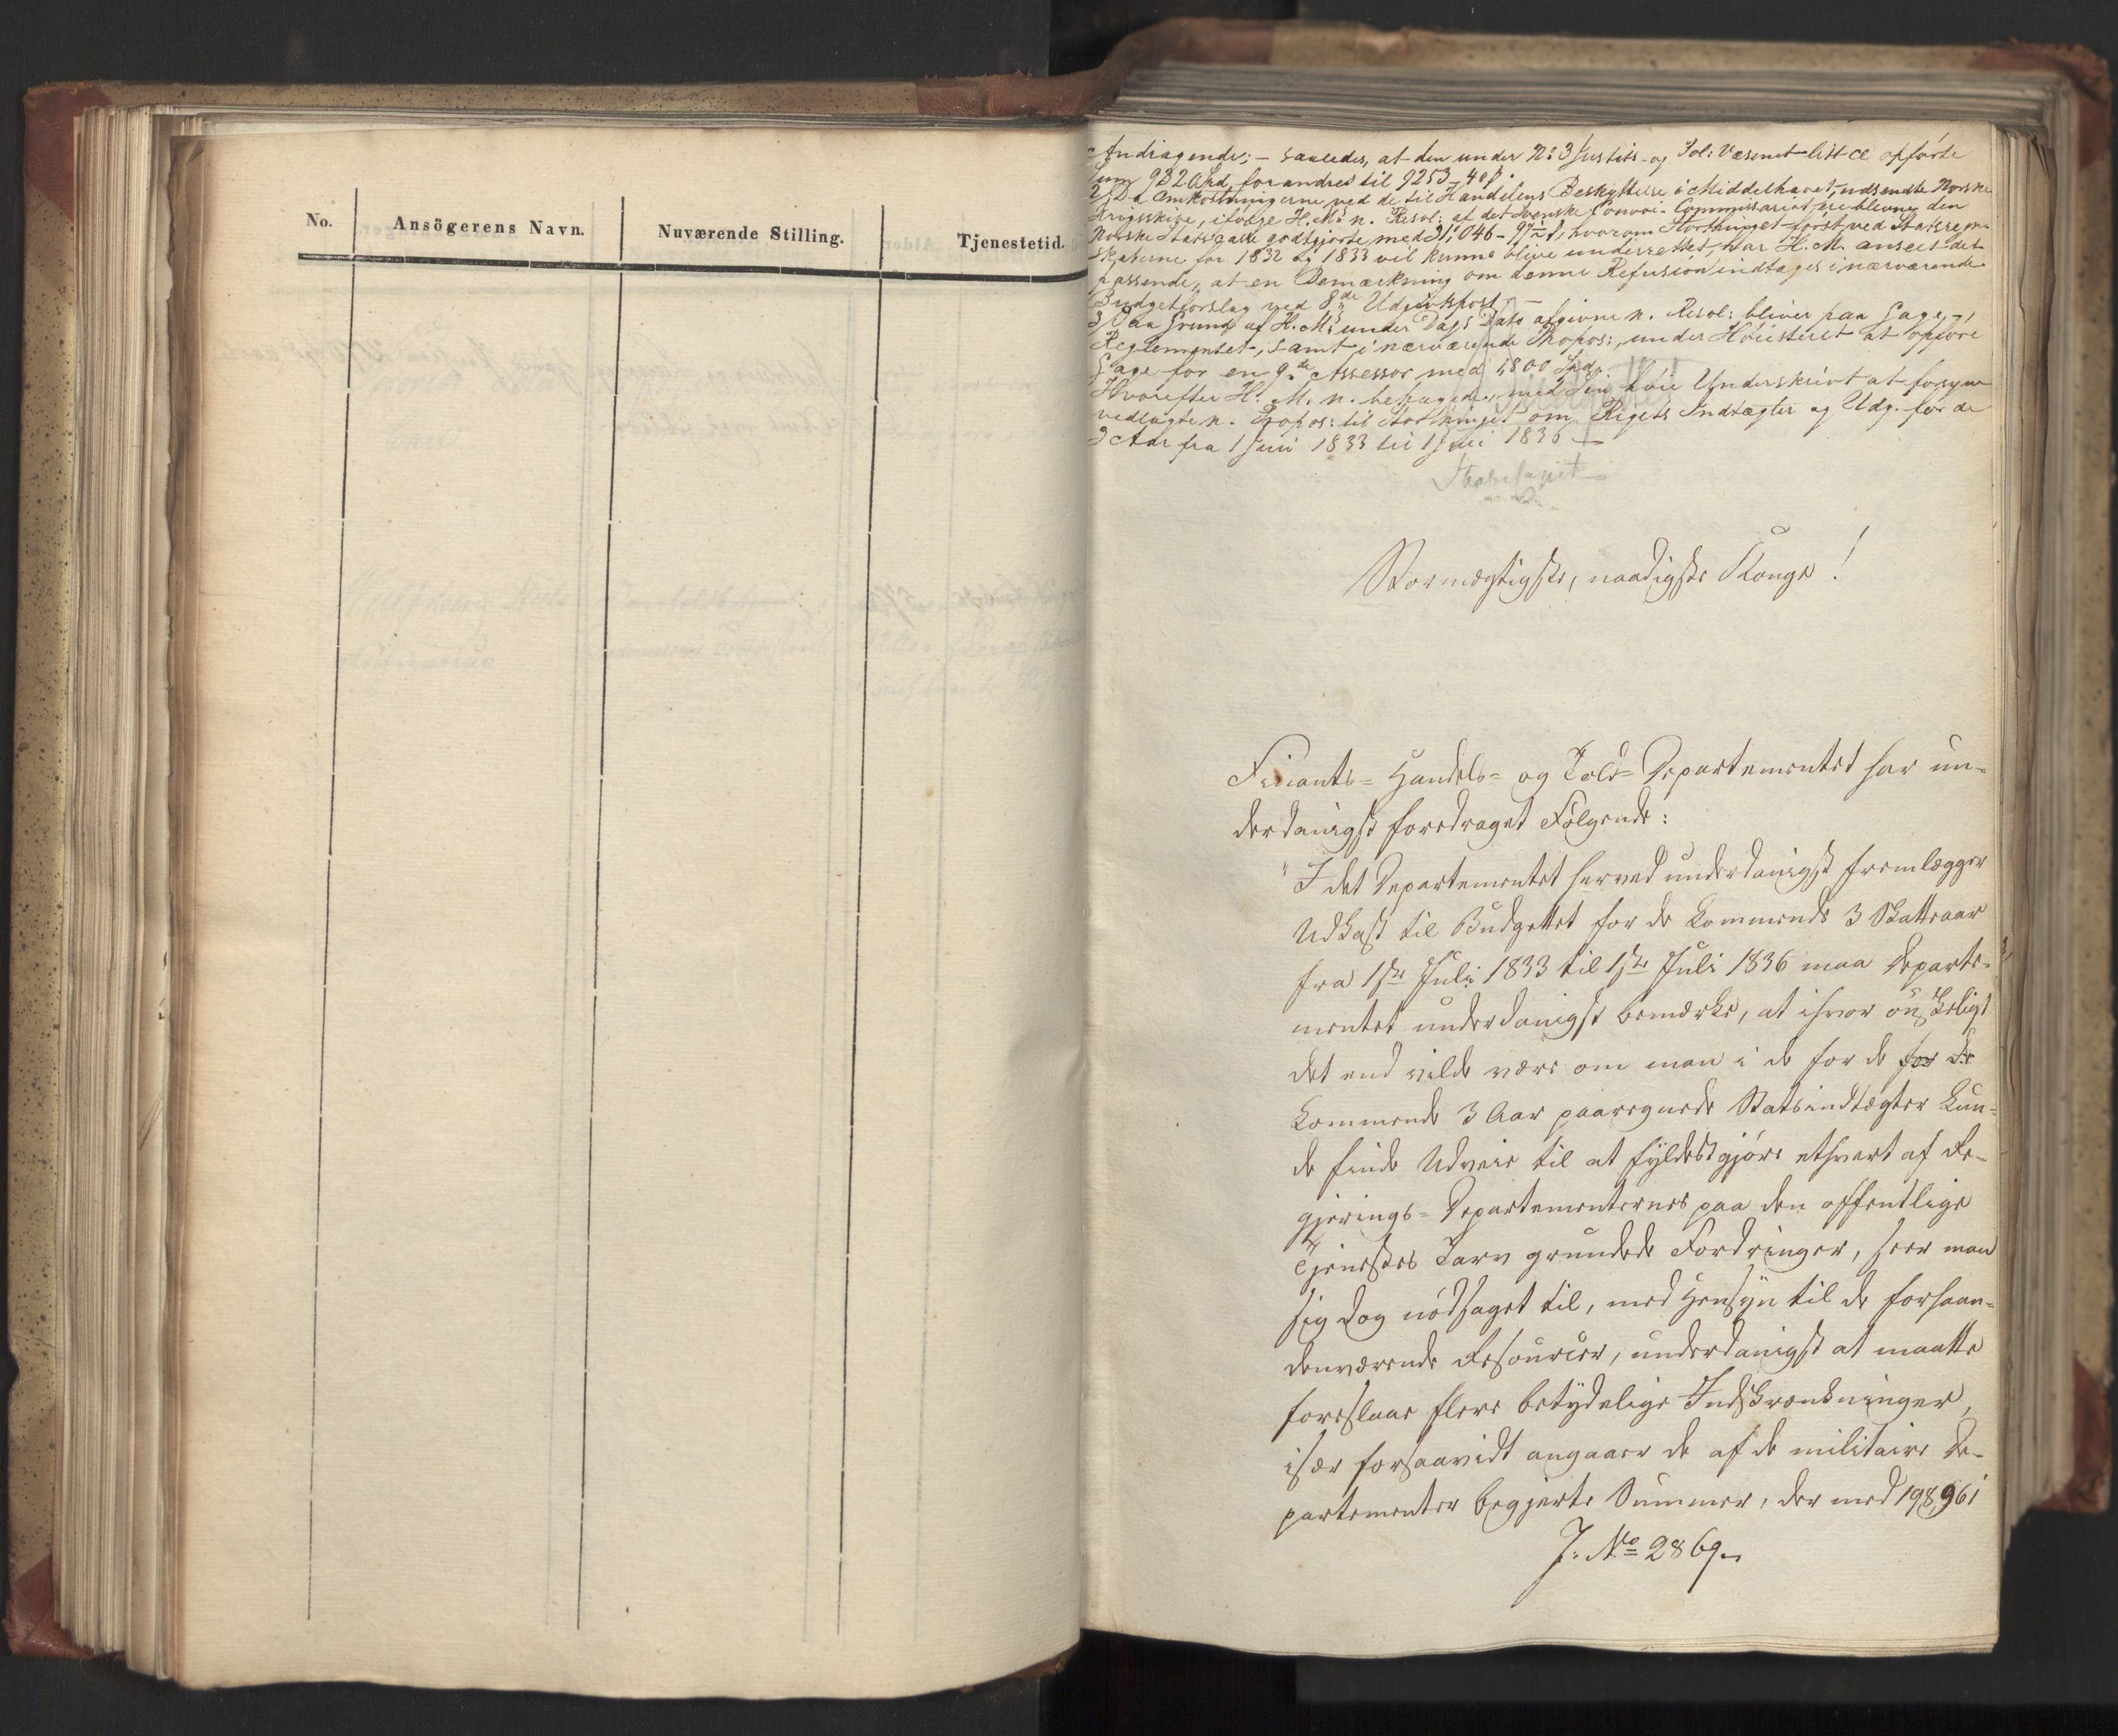 No.
Ansögerens Navn.
Nuværende Stilling.
Tjenestetid.
Andragende; – saaledes, at den under No: 3 Justits- og Pol: Væsenet litt. opførte
Sum 9320 Spd. forandres til 9253 – 40 ß.
2) Da Omkostningerne ved de til Handelens Beskyttelse i Middelhavet udsendte Norske
Krigsskibe, ifölge H. Ms n. Resol: af det Svenske Convoi-Commissariat ere blevne den
Norske Statscasse godtgjorte med 31,046 – 97 ß, hvorom Storthinget först ved Statsregn-
skaberne for 1832 og 1833 vil kunne blive underrettet, har H. M. anseet det
passende, at en Bemærkning om denne Refusion indtages i nærværende
Budgetforslag ved 8de Udgiftspost. –
3) Paa Grund af H. Ms under Dags Dato afgivne n. Resol: bliver paa Gage-
Reglementet, samt i nærværende Propos:, under Höiesteret at opföre
Gage for en 9de Assessor med 1,800 Spd.
Hvorefter H. M. n. behagede, med Sin höie Underskrivt at forsyne
vedlagte n. Propos: til Storthinget om Rigets Indtægter og Udg. for de
3 Aar fra 1 Juli 1833 til 1 Juli 1836 –
Stormægtigste, naadigste Konge!
Finants- Handels- og Told-Departementet har un-
derdanigst foredraget Følgende:
"I det Departementet herved underdanigst fremlægger
Udkast til Budgettet for de kommende 3 Skatteaar
fra 1ste Juli 1833 til 1ste Juli 1836 maa Departe-
mentet underdanigst bemærke, at ihvor önskeligt
det end vilde være om man i de for de for de
kommende 3 Aar paaregnede Statsindtægter kun-
de finde Udveie til at fyldestgjöre ethvert af Re-
gjerings-Departementernes paa den offentlige
Tjenestes Tarv grundede Fordringer, seer man
sig dog nödsaget til, med Hensyn til de forhaan-
denværende Resourcer, underdanigst at maatte
foreslaae flere betydelige Indskrænkninger,
især forsaavidt angaaer de af de militaire De-
partementer begjerte Summer, der med 198,961
J. No 2869.